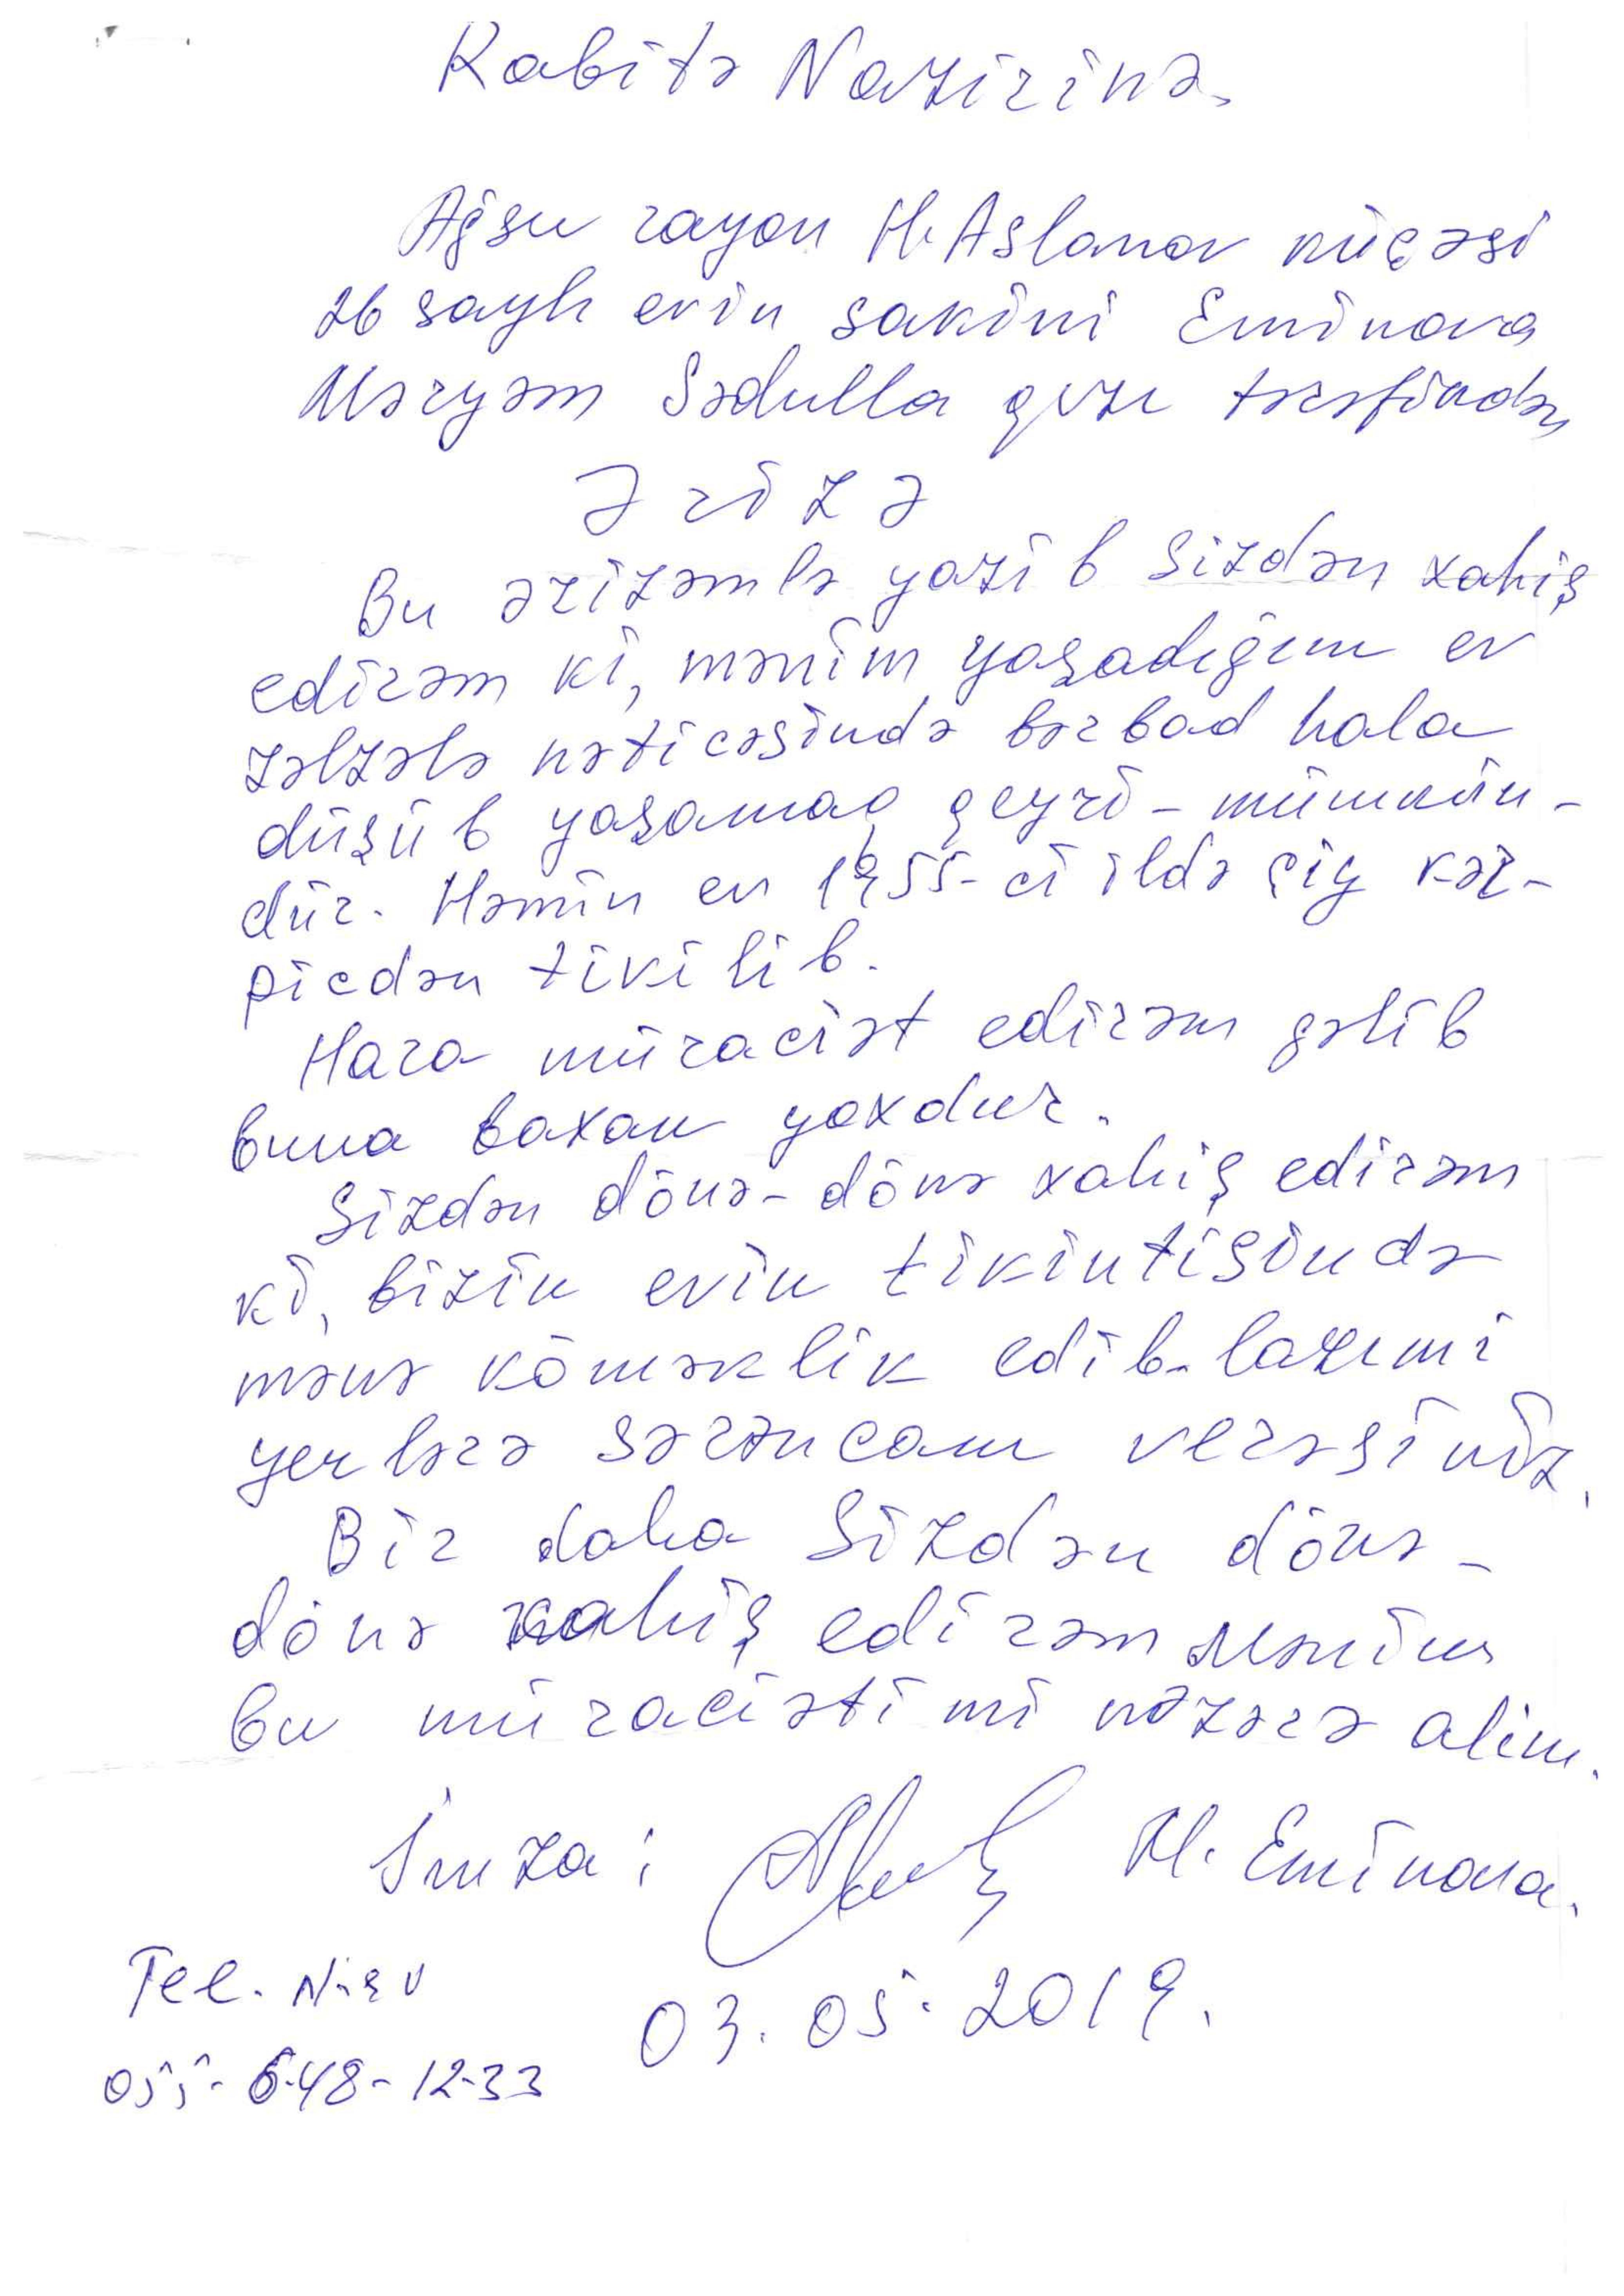 Rabitə Nazirinə.
Ağsu rayon H.Aslanov küçəsi
26 saylı evin sakini Eminova
Məryəm Sədulla qızı tərəfindən
Ərizə
Bu ərizəmlə yazıb Sizdən xahiş
edirəm ki, mənim yaşadığım ev
zəlzələ nəticəsində bərbad hala
düşüb yaşamaq qeyri-mümkün-
dür. Həmin ev 1955-ci ildə çiy kər-
picdən tikilib.
Hara müraciət edirəm gəlib
buna baxan yoxdur.
Sizdən dönə-dönə xahiş edirəm
ki, bizim evin tikintisində
mənə köməklik edib lazımi
yerlərə sərəncam verəsiniz.
Bir daha Sizdən dönə-
dönə xahiş edirəm mənim
bu müraciətimi nəzərə alın.
İmza: M. Eminova.
Tel. N-si
03.05.2019.
055-648-12-33